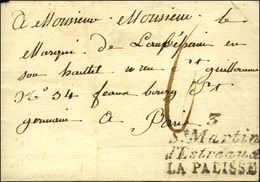 A Monsieur Monsieur le
Marquis de en
son hauttel rue St guillaume
N° 34 feaux bourg St
germain A Paris
3
St Martin
d'Estreaux
LA PALISSE